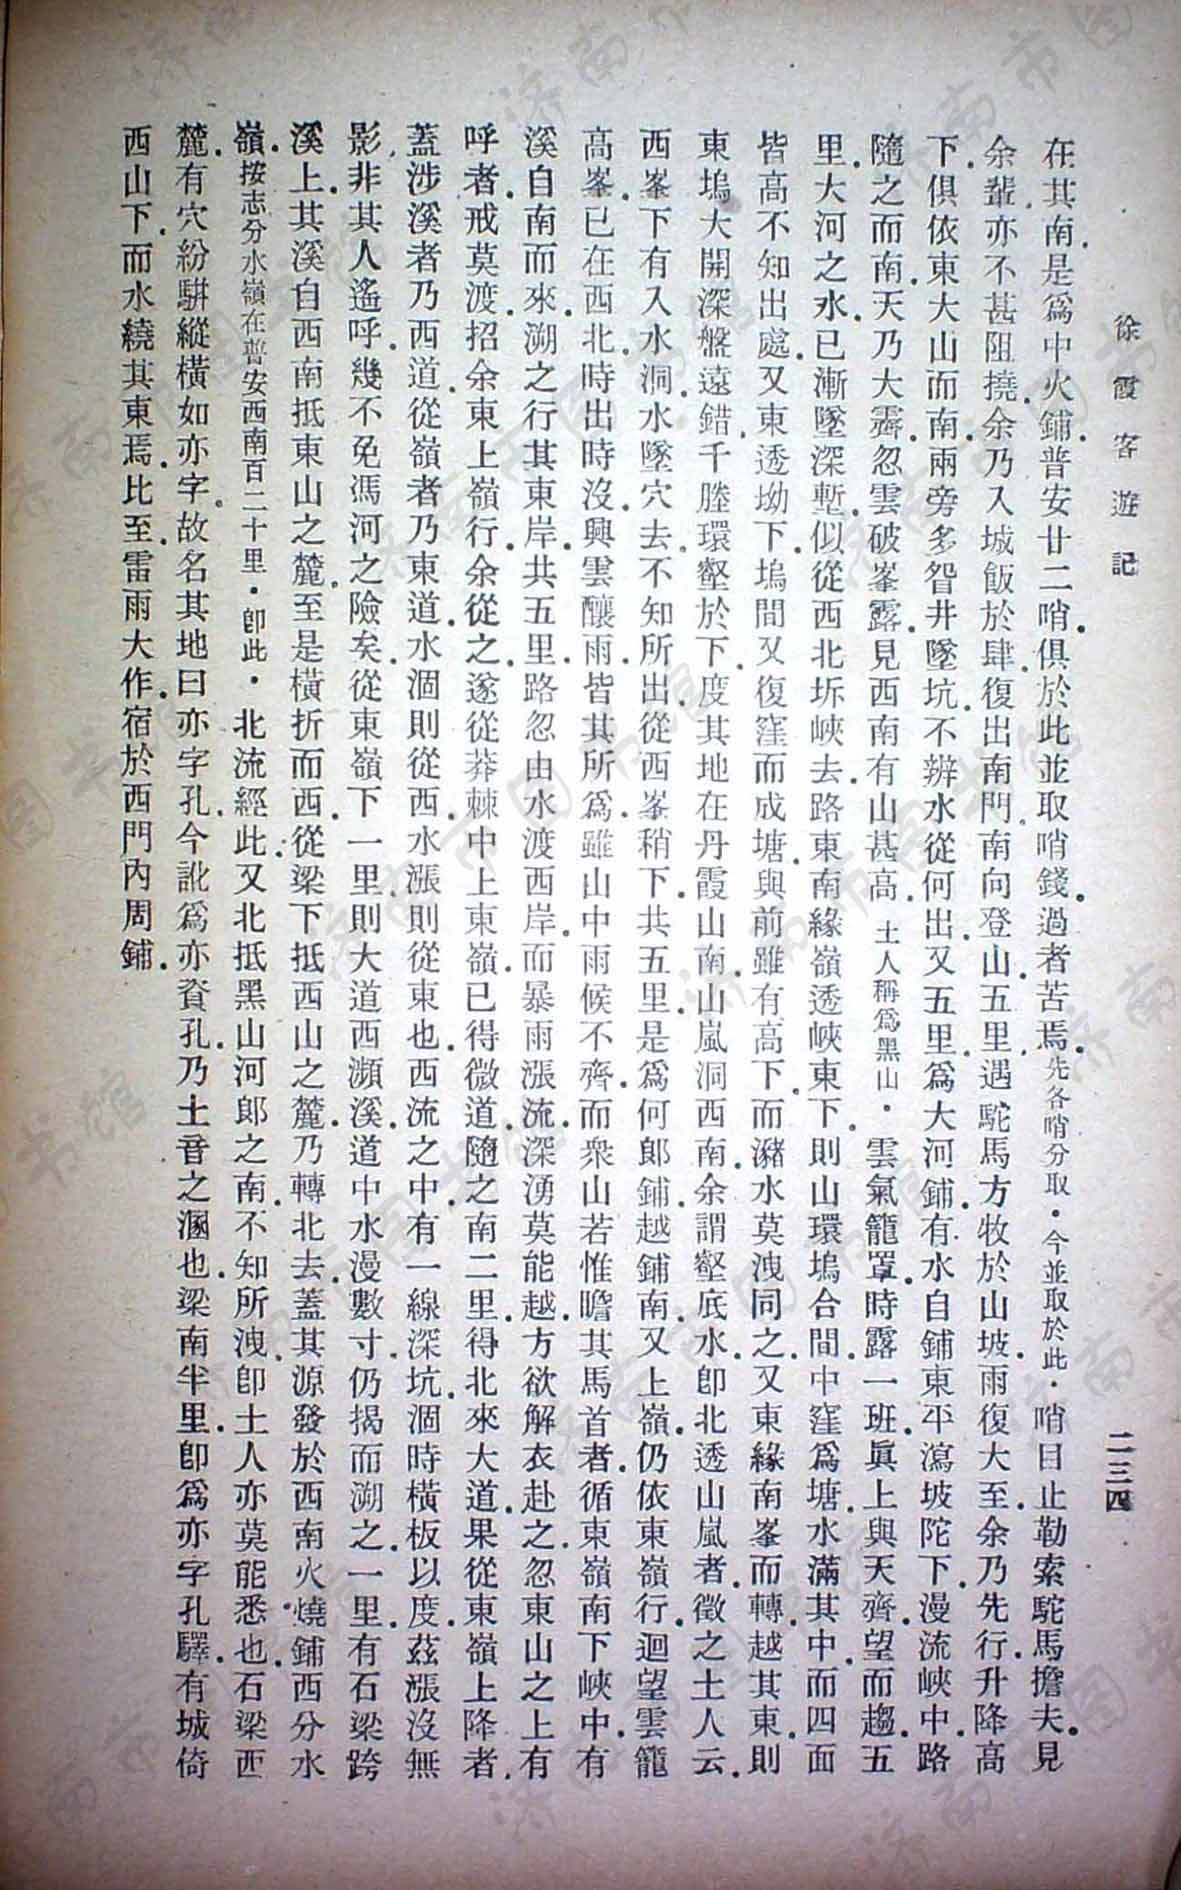 徐霞客遊記
二三四
在其南.是爲中火鋪.普安廿二哨.俱於此並取哨錢.過者苦焉.先各哨分取.今並取於此.哨目止勒索駝馬擔夫.見
余輩.亦不甚阻撓.余乃入城.飯於肆.復出南門.南向登山.五里.遇駝馬方牧於山坡.雨復大至.余乃先行.升降高
下.俱依東大山而南.兩旁多眢井墜坑.不辨水從何出.又五里.爲大河鋪.有水自鋪東平瀉坡陀下.漫流峽中.路
隨之而南.天乃大霽.忽雲破峯露.見西南有山甚高.土人稱爲黑山.雲氣籠罩.時露一班.眞上與天齊.望而趨.五
里.大河之水.已漸墜深塹.似從西北坼峽去.路東南緣嶺透峽東下.則山環塢合間.中窪爲塘.水滿其中.而四面
皆高.不知出處.又東透坳下.塢間又復窪而成塘.與前雖有高下.而瀦水莫洩同之.又東緣南峯而轉.越其東.則
東塢大開.深盤遠錯.千塍環壑於下.度其地在丹霞山南.山嵐洞西南.余謂壑底水.卽北透山嵐者.徵之土人云.
西峯下有入水洞.水墜穴去.不知所出.從西峯稍下.共五里.是爲何郎鋪.越鋪南.又上嶺.仍依東嶺行.迴望雲籠
高峯.已在西北.時出時沒.興雲釀雨.皆其所爲.雖山中雨候不齊.而衆山若惟瞻其馬首者.循東嶺南下峽中.有
溪自南而來.溯之行其東岸.共五里.路忽由水渡西岸.而暴雨漲流.深湧莫能越.方欲解衣赴之.忽東山之上有
呼者.戒莫渡.招余東上嶺行.余從之.遂從莽棘中上東嶺.已得微道.隨之南二里.得北來大道.果從東嶺上降者.
蓋涉溪者乃西道.從嶺者乃東道.水涸則從西.水漲則從東也.西流之中.有一線深坑.涸時橫板以度.茲漲沒無
影.非其人遙呼.幾不免馮河之險矣.從東嶺下一里.則大道西瀕溪.道中水漫數寸.仍揭而溯之.一里.有石梁跨
溪上.其溪自西南抵東山之麓.至是橫折而西.從梁下抵西山之麓.乃轉北去.蓋其源發於西南火燒鋪西分水
嶺.按志分水嶺在普安西南百二十里.卽此.北流經此.又北抵黑山河郞之南.不知所洩.卽土人亦莫能悉也.石梁西
麓.有穴紛騈縱橫如亦字.故名其地曰亦字孔.今訛爲亦資孔.乃土音之溷也.梁南半里.卽爲亦字孔驛.有城倚
西山下.而水繞其東焉.比至.雷雨大作.宿於西門內周鋪.
济南市图书馆